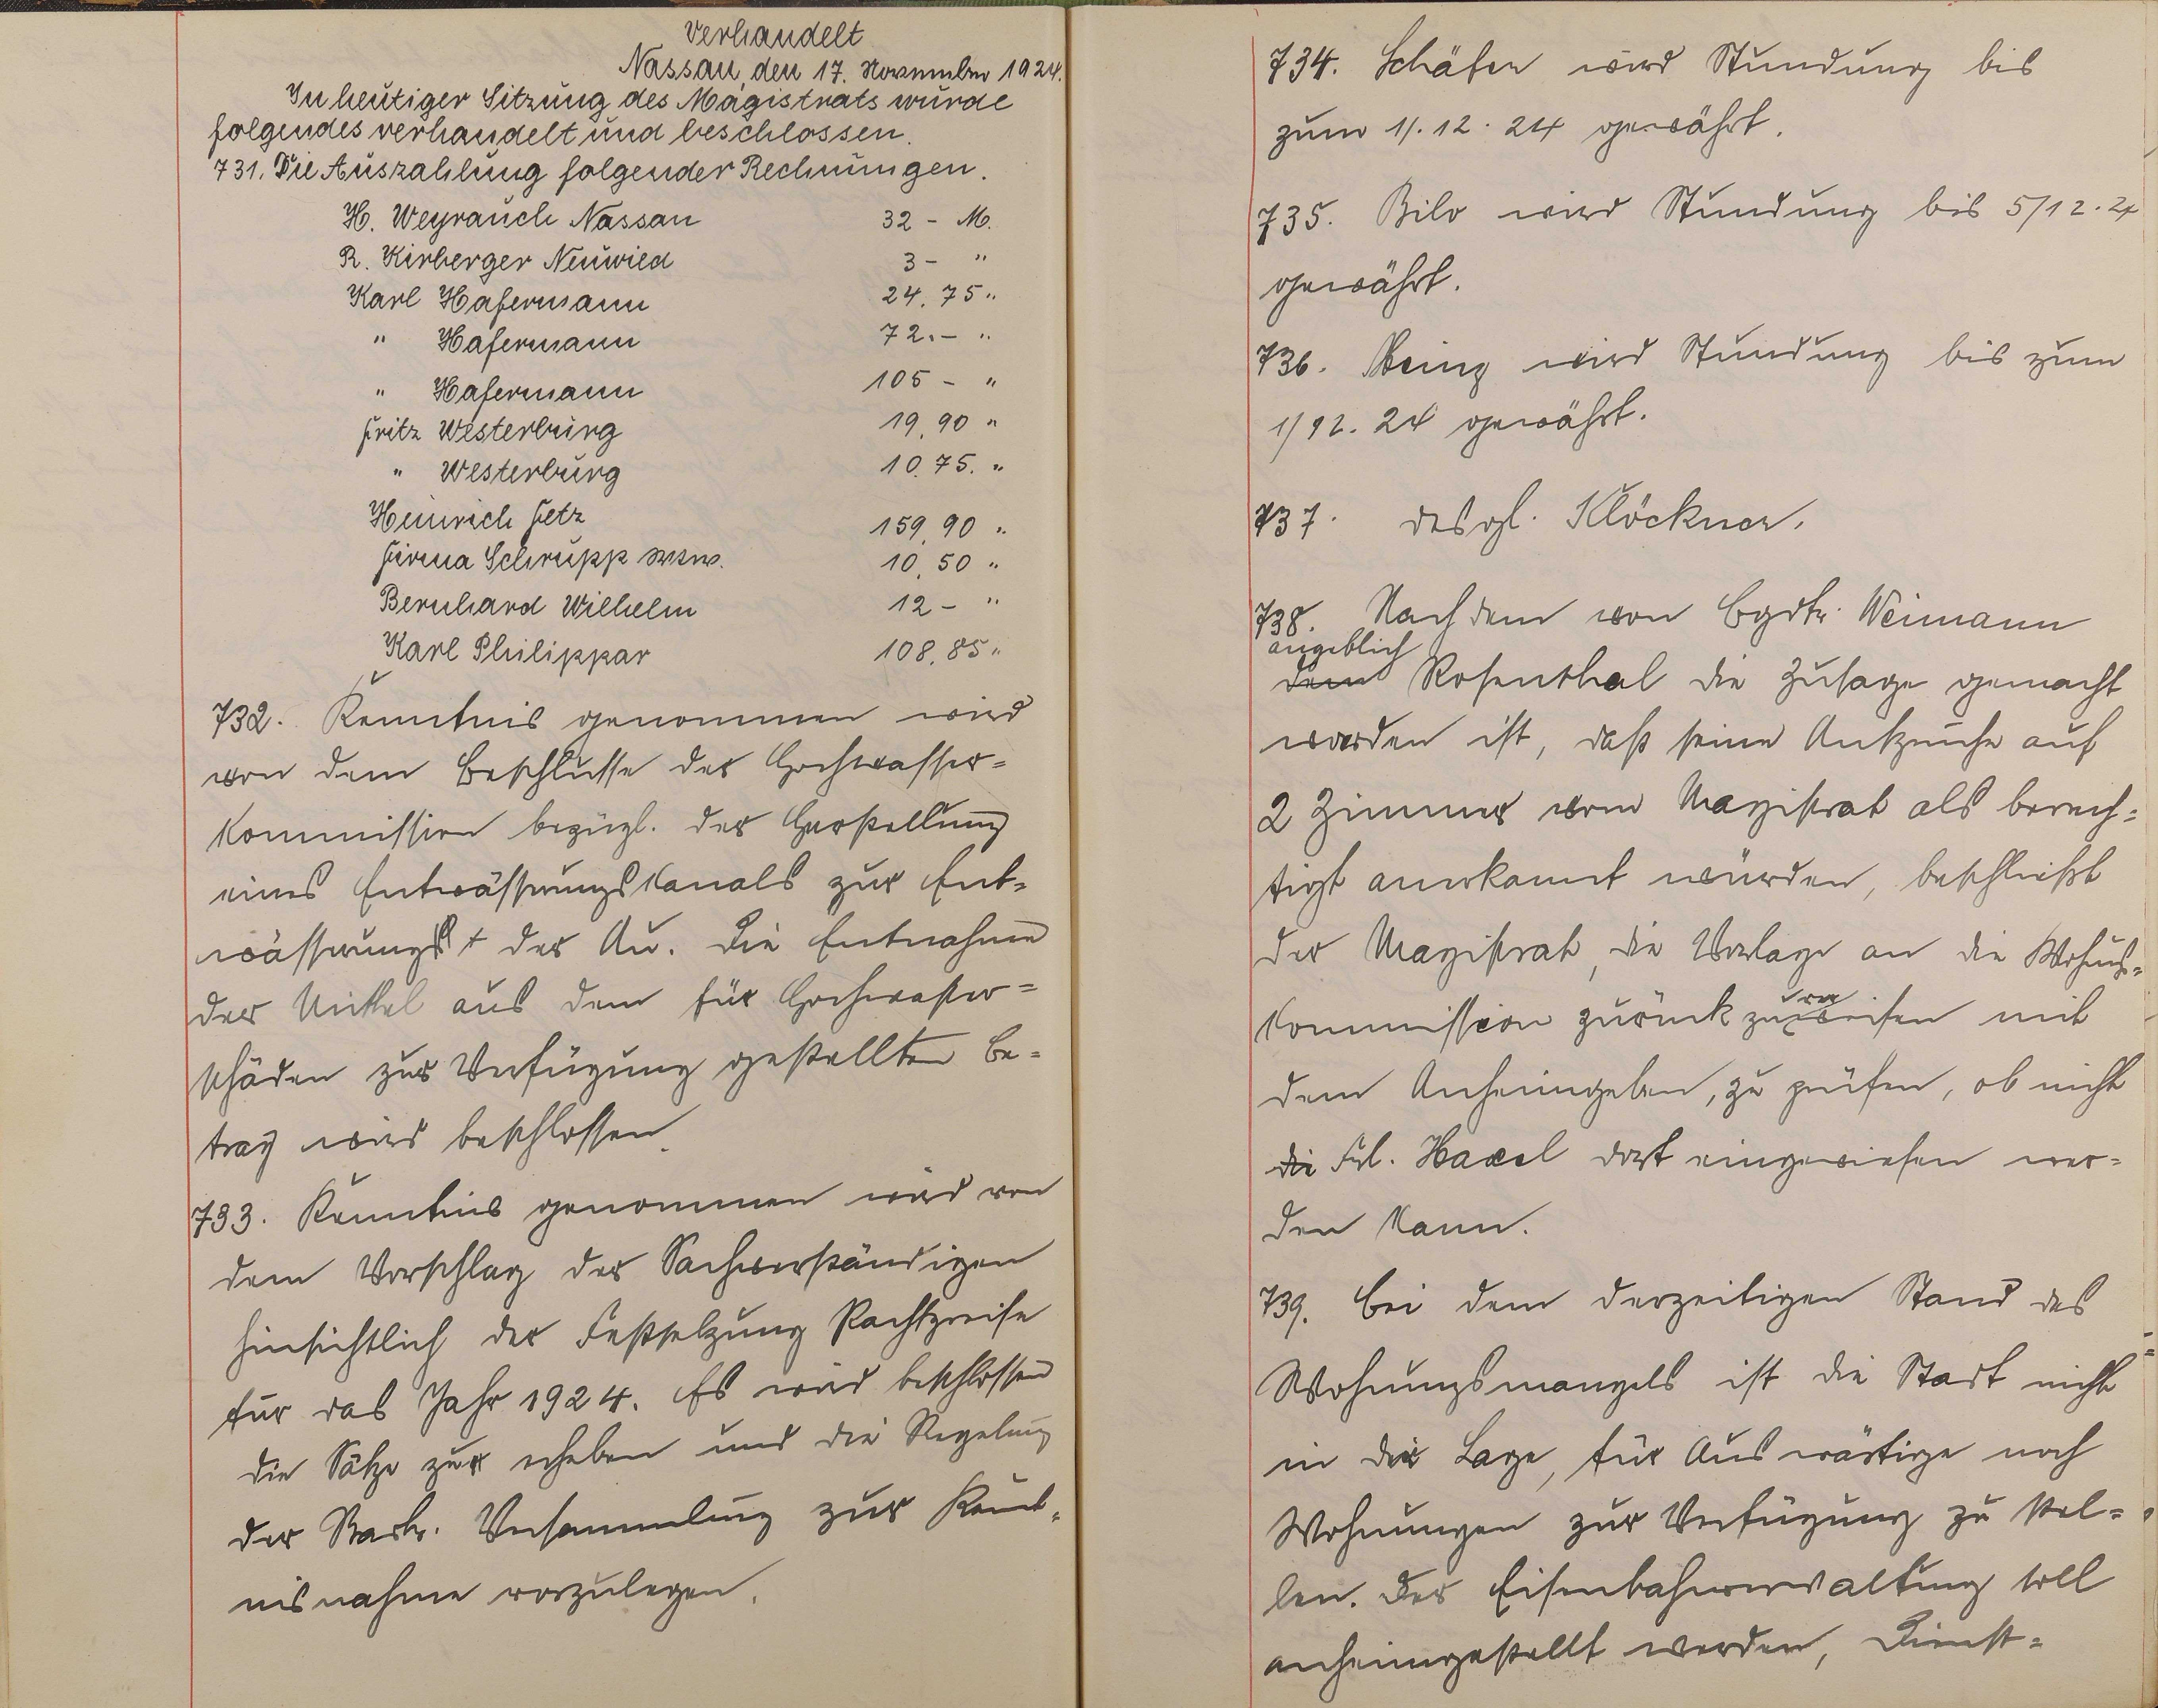 Verhandelt
Nassau, den 17. November 1924.
In heutiger Sitzung des Magistrats wurde
folgendes verhandelt und beschlossen.
731. Die Auszahlung folgender Rechnungen.
H. Weyrauch Nassau 32 - M.
R. Kirberger Neuwied 3 - "
Karl Hafermann 24.75 "
" Hafermann 72.- "
" Hafermann 105 - "
Fritz Westerburg 19,90 "
" Westerburg 10.75. "
Heinrich Fetz 159,90 "
Firma Schrupp usw. 10,50 "
Bernhard Wilhelm 12 - "
Karl Philippar 108,85 "
732. Kenntnis genommen wird
von dem Beschlusse der Hochwasser=
kommission bezügl. der Herstellung
eines Entwässerungskanals zur Ent=
wässerung der Au. Die Entnahme
der Mittel aus dem für Hochwasser=
schäden zur Verfügung gestellten Be=
trag wird beschlossen.
733. Kenntnis genommen wird von
dem Vorschlag der Sachverständigen
hinsichtlich der Festsetzung Pachtpreise
für das Jahr 1924. Es wird beschlossen
die Sätze zu erheben und die Regelung
der Stadtv. Versammlung zur Kennt=
nisnahme vorzulegen.
734. Schäfer wird Stundung bis
zum 1/.12.24 gewährt.
735. Bilo wird Stundung bis 5/12.24
gewährt.
736. wird Stundung bis zum
1/12.24 gewährt.
737. desgl. Klöckner.
738. Nachdem von Bgdtr. Weimann
angeblich
dem Rosenthal die Zusage gemacht
worden ist, daß seine Ansprüche auf
2 Zimmer vom Magistrat als berech=
tigt anerkannt würden, beschließt
der Magistrat, die Vorlage an die Wohngs=
kommission zurück zu verweisen mit
dem Anheimgeben, zu prüfen, ob nicht
die Frl. Haxel dort eingewiesen wer=
den kann.
739. Bei dem derzeitigen Stand des
Wohnungsmangels ist die Stadt nicht
in der Lage, für Auswärtige noch
Wohnungen zur Verfügung zu stel=
len. Der Eisenbahnverwaltung soll
anheimgestellt werden, Dienst=